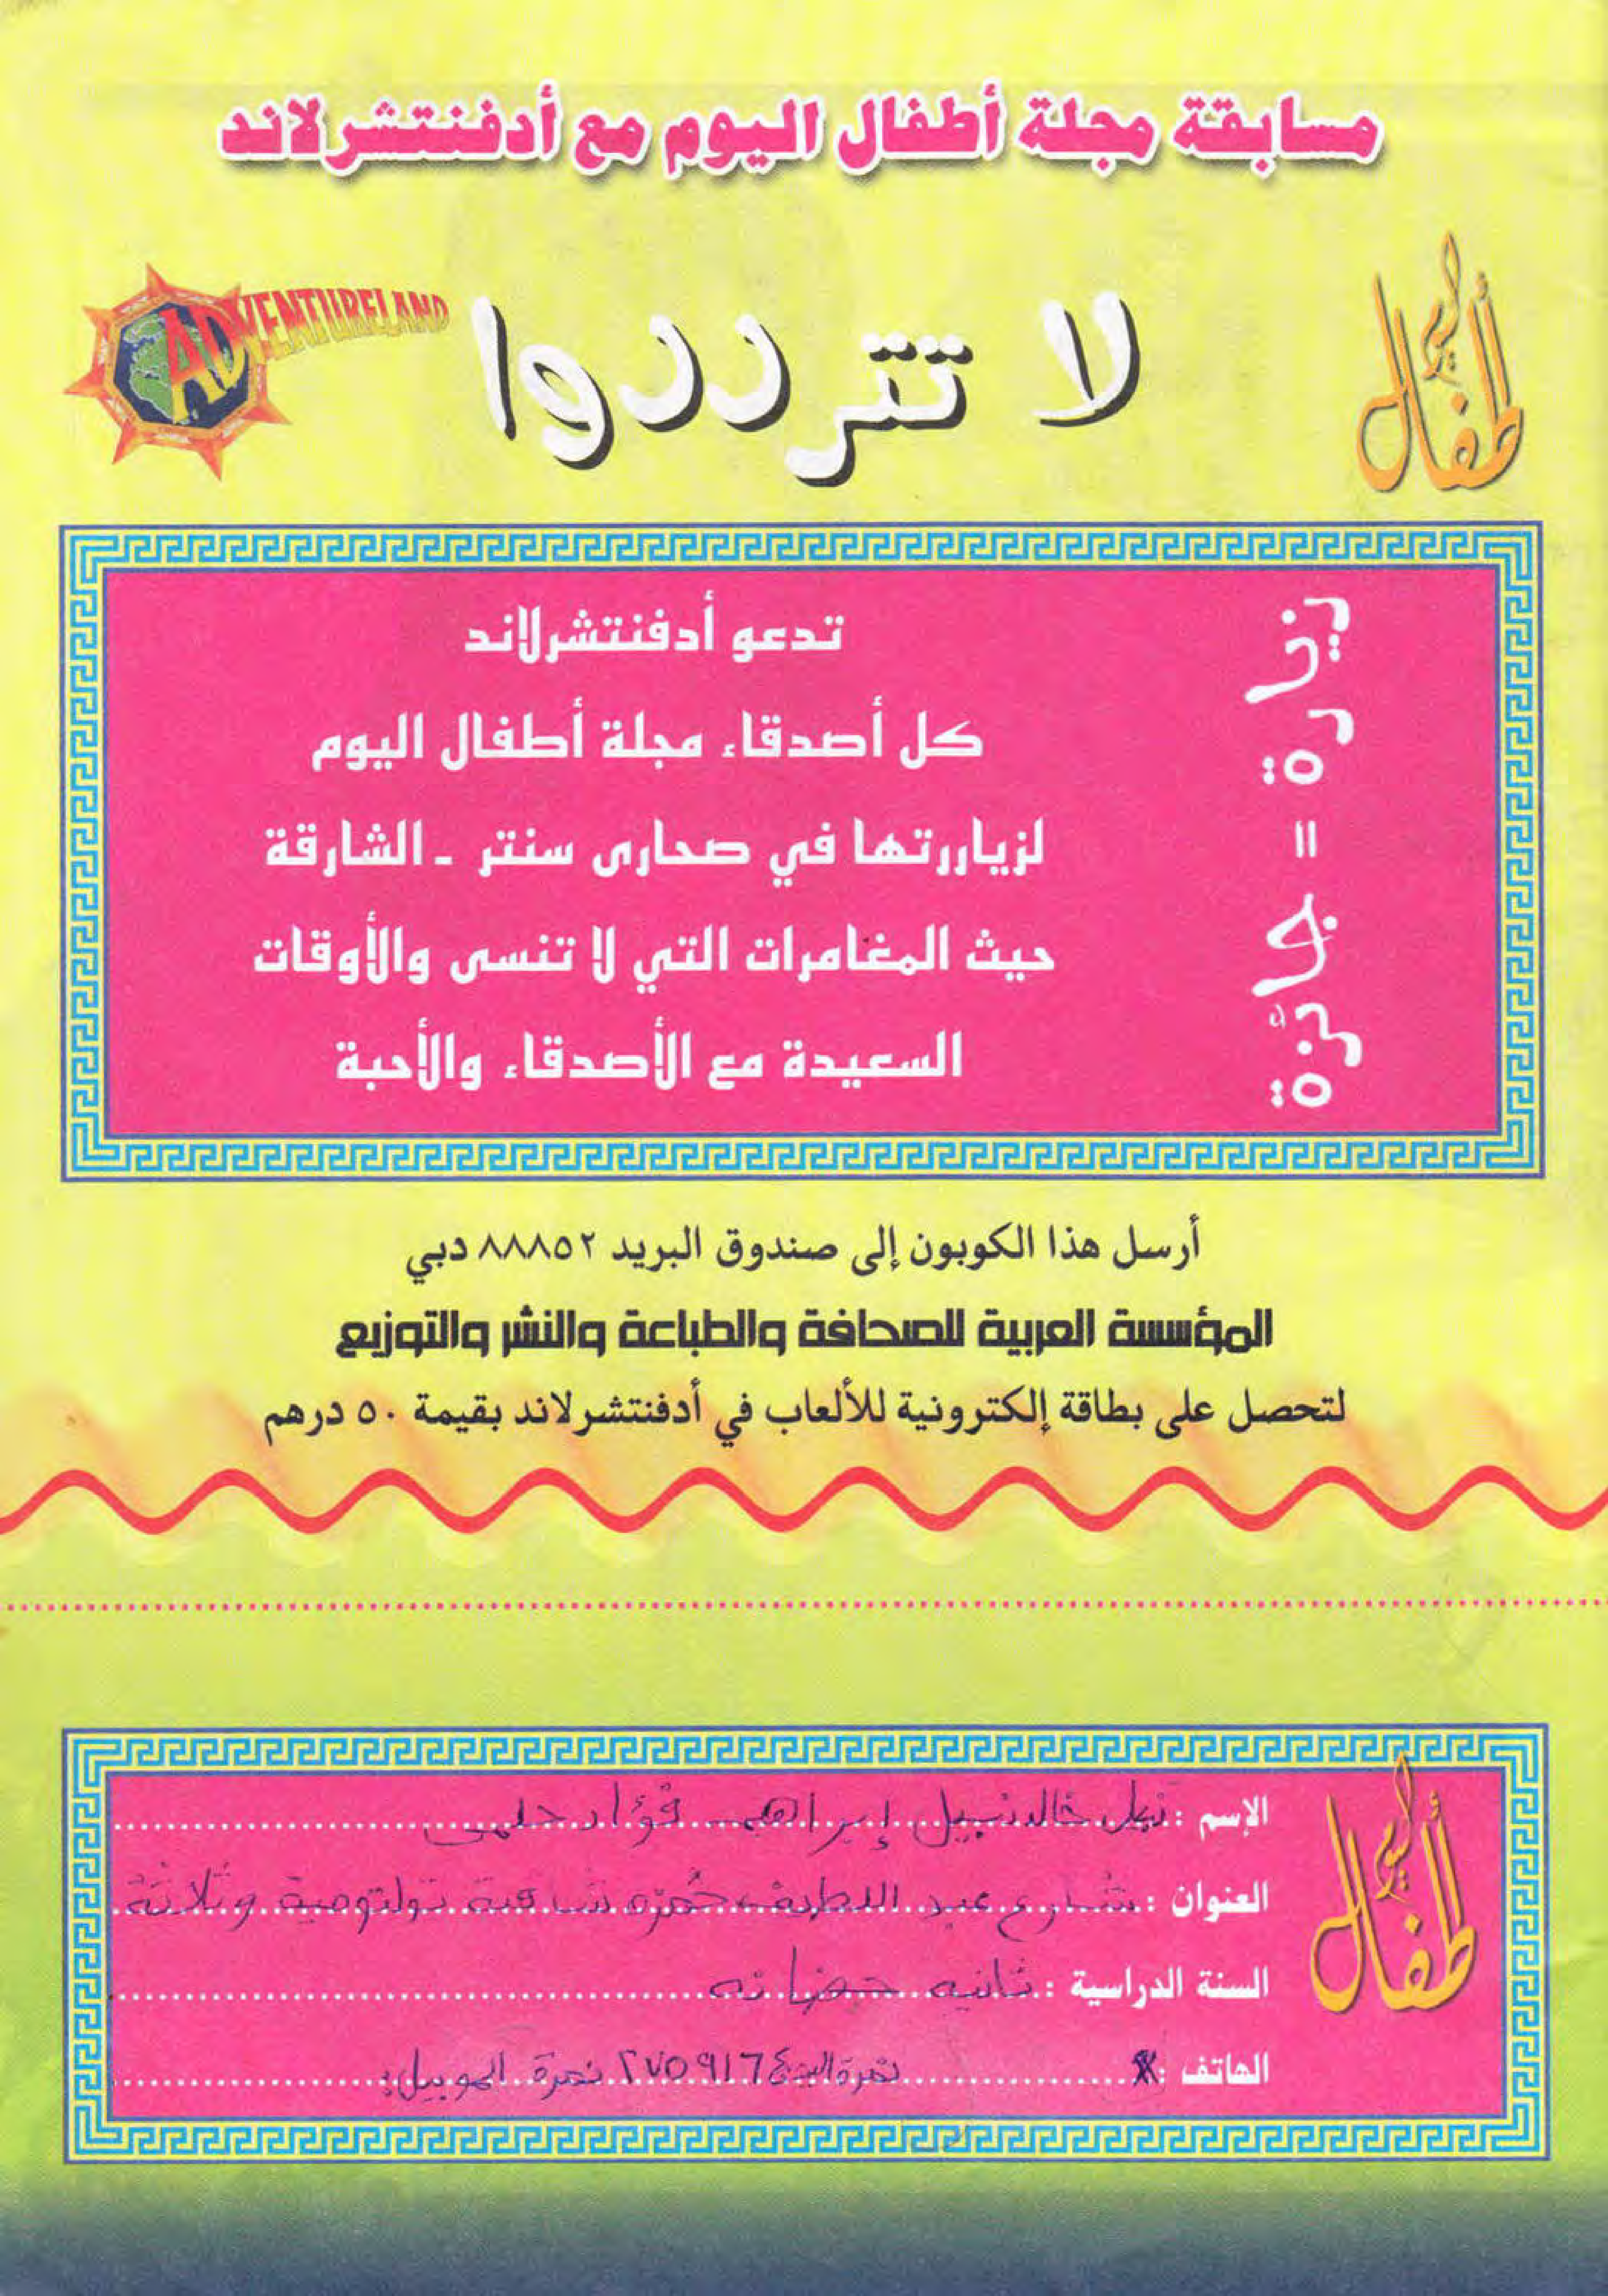 مسابقة مجلة أطفال اليوم مع أدفنتشرلاند
أطفال اليوم
لا تترددوا
ADVENTURELAND
زيارة = جائزة
تدعو أدفنتشرلاند
كل أصدقاء مجلة أطفال اليوم
لزياررتها في صحارى سنتر - الشارقة
حيث المغامرات التي لا تنسى والأوقات
السعيدة مع الأصدقاء والأحبة
أرسل هذا الكوبون إلى صندوق البريد ٨٨٨٥٢ دبي
المؤسسة العربية للصحافة والطباعة والنشر والتوزيع
لتحصل على بطاقة إلكترونية للألعاب في أدفنتشرلاند بقيمة ٥٠ درهم
أطفال اليوم
الإسم : خالد نبيل إبراهيم فؤاد حلمى
العنوان : شارع عبد اللطيف حمزه شقة وثلاثة
السنة الدراسية : ثانيه حضانه
الهاتف : نمرة البيت ٢٧٥٩١٦٤ نمرة الموبيل: